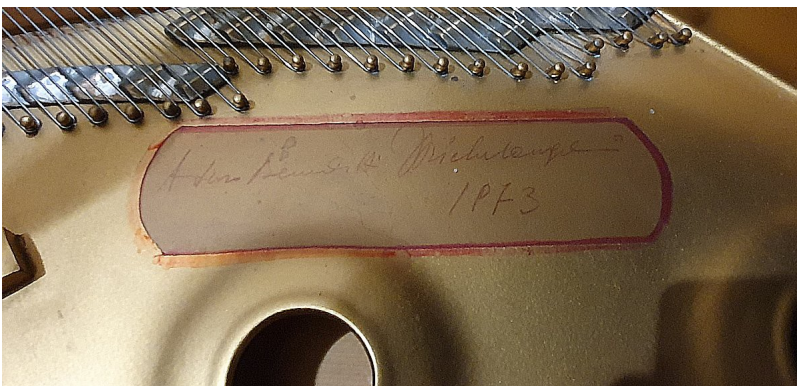 Arturo Benedetti Michelangeli
1973